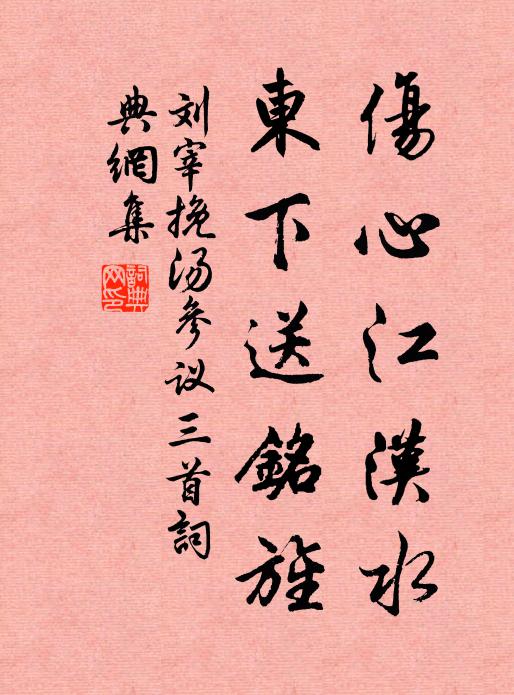 傷心江漢水
東下送銘旌
刘宰挽汤參议三首詞
典網集
詞典
网印